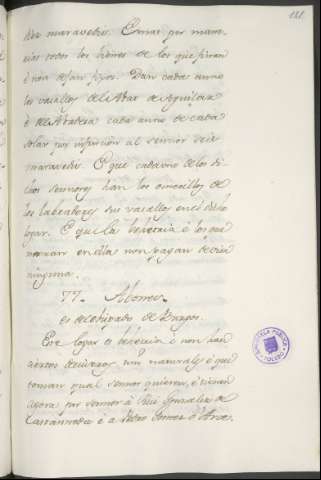 181.
diez maravedis. E mas por mane-
rias todos los bienes de los que finan
é non dejan fijos. Dan cada anno
los vasallos del Abat de Aguilar
é del Abadesa cada anno de cada
solar por infurcion al sennor seis
maravedis. E que cada uno de los di-
chos sennores han los omecillos de
los labradores sus vasallos en el dicho
logar. E que la behetria é los que
moran en ella non pagan devisa
ninguna.
77. Abones.
es del obispado de Burgos.
Este logar es behetria é non han
ciertos deviseros nin naturales é que
toman qual sennor quieren, é tienen
agora por sennor á Rui Gonzalez de
Castanneda é a Pedro Gomez d'Arce.
BIBLIOTECA PUBLICA
TOLEDO